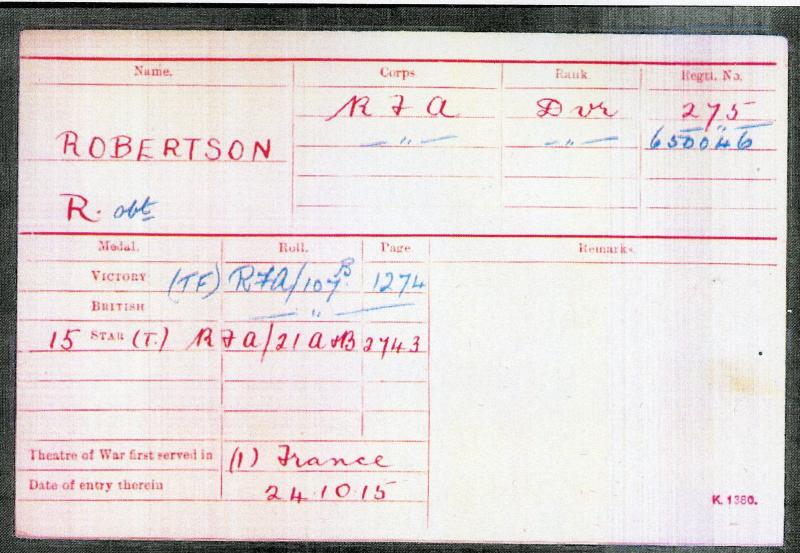 Name. Corps. Rank. Regtl. No.
R F A Dvr 275
ROBERTSON — " — — " — 650046
R. obt
Medal. Roll. Page. Remarks.
VICTORY (TF) RFA/107B. 1274
BRITISH — " —
15 STAR (T.) RFA/21 A &B 2743
Theatre of War first served in (1) France
Date of entry therein 24.10.15
K. 1380.